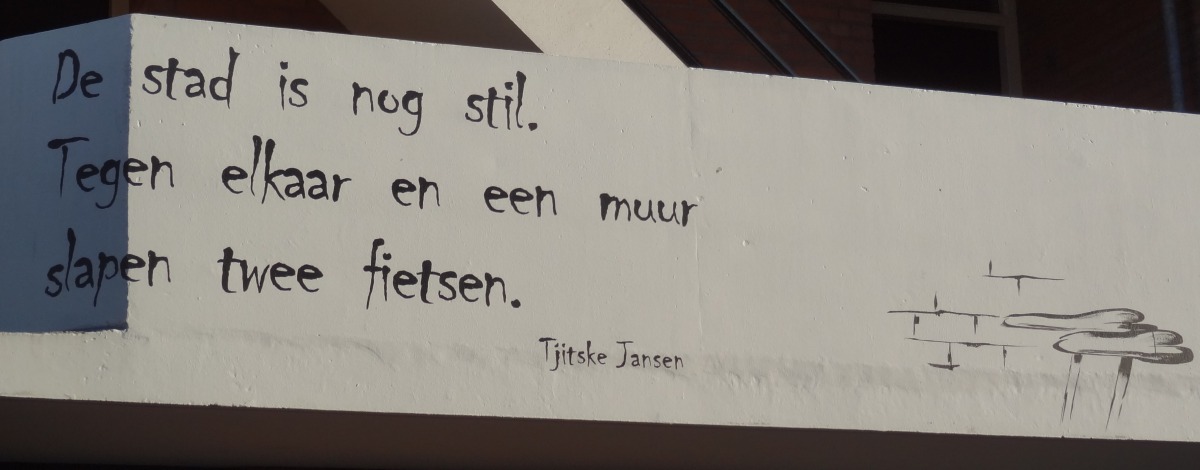 De stad is nog stil.
Tegen elkaar en een muur
slapen twee fietsen.
Tjitske Jansen